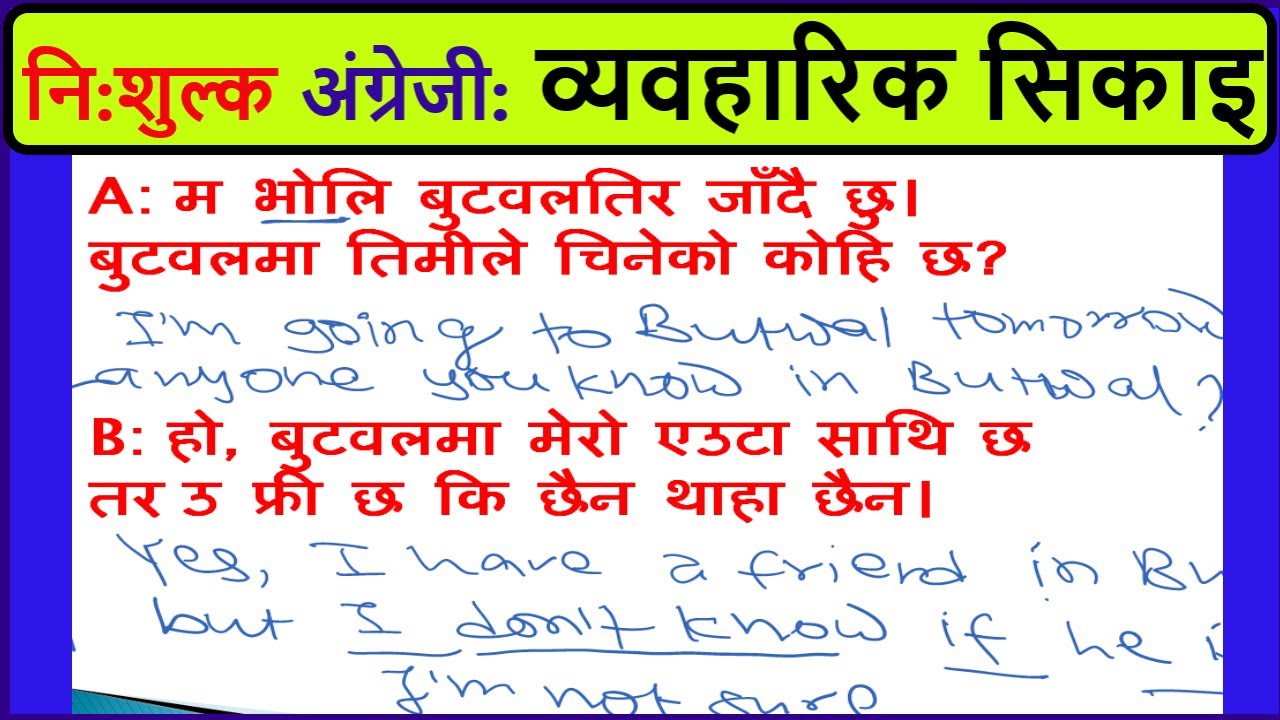 नि:शुल्क अंग्रेजी: व्यवहारिक सिकाइ
A: म भोलि बुटवलतिर जाँदै छु।
बुटवलमा तिमीले चिनेको कोहि छ?
I'm going to Butwal tomorrow
anyone you know in Butwal?
B: हो, बुटवलमा मेरो एउटा साथि छ
तर उ फ्री छ कि छैन थाहा छैन।
Yes, I have a friend in Bu
but I don't know if he i
I'm not sure